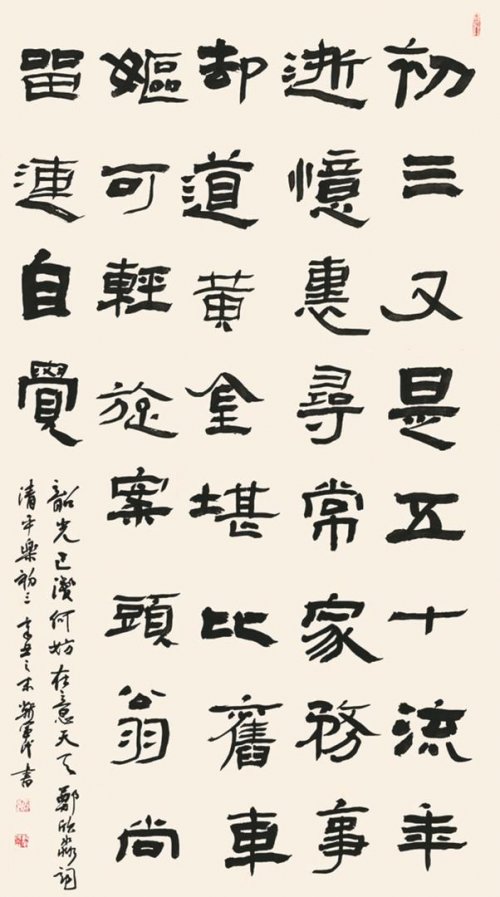 初三又是五十流年
逝憶惠尋常家務事
却道黃金堪比舊車
嫗可輕旋案頭翁尚
留連自覺
韶光已淺何妨在意天天鄭欣淼詞
清平樂初三辛丑之末書